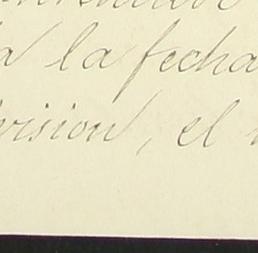 a la fecha
vision, el